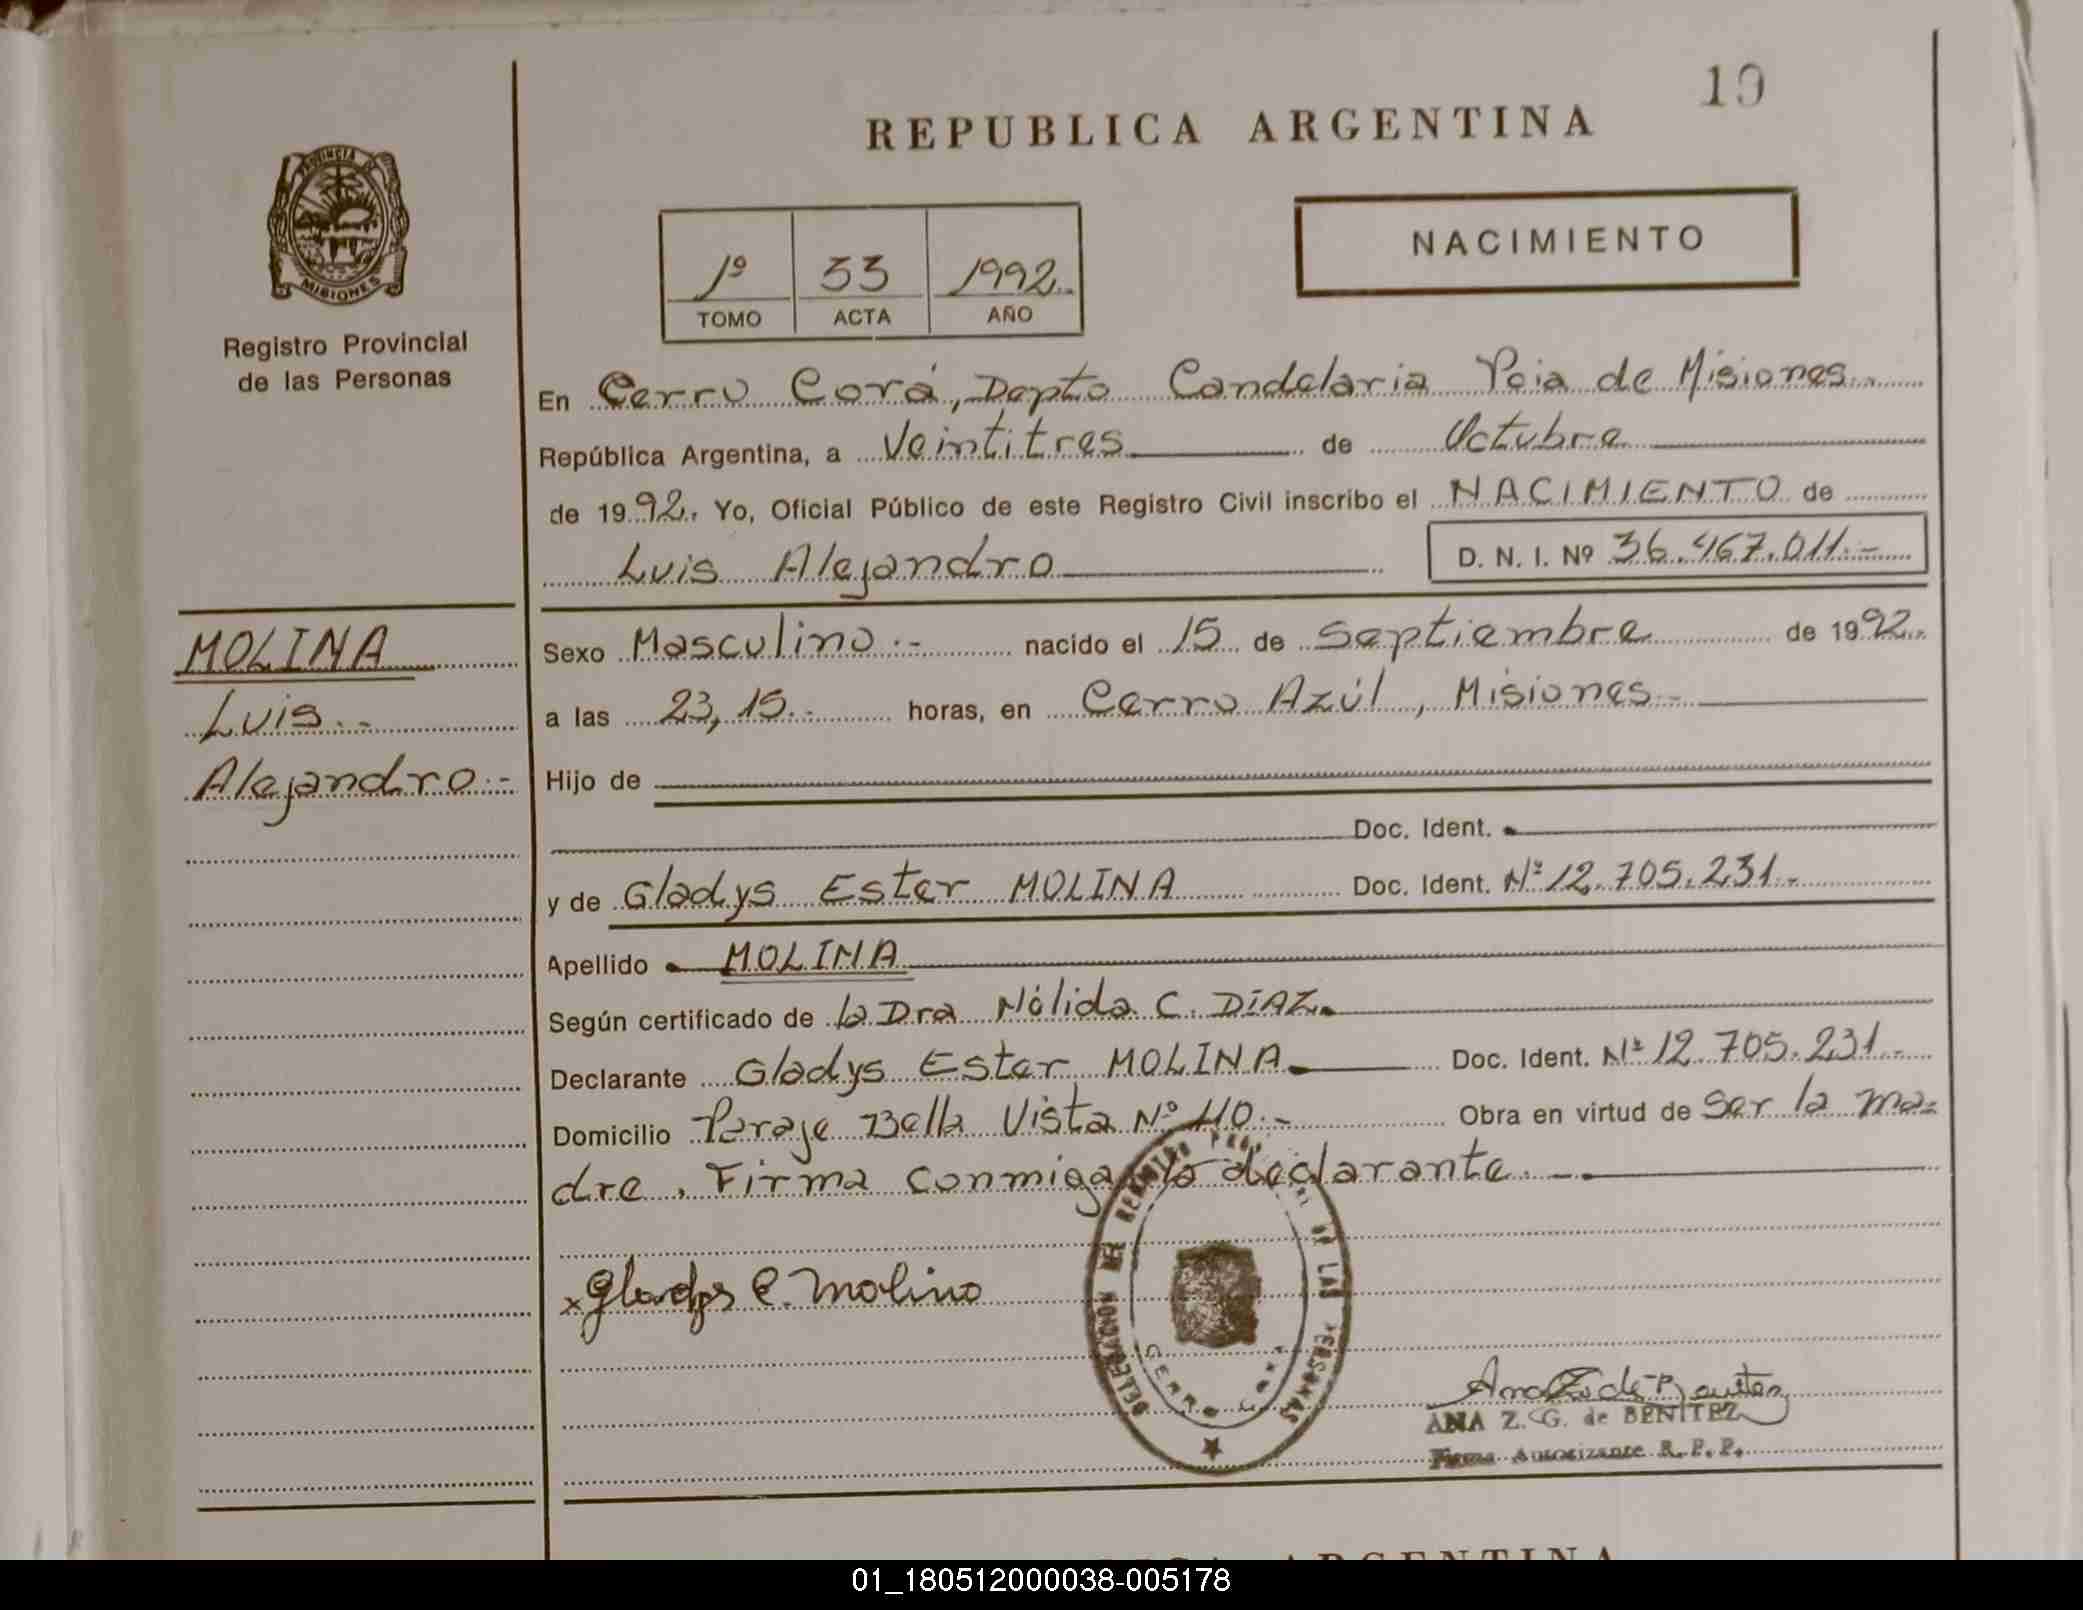 19
REPUBLICA ARGENTINA
PROVINCIA DE
MISIONES
Registro Provincial
de las Personas
1º 33 1992.
TOMO ACTA AÑO
NACIMIENTO
En Cerro Corá, Depto Candelaria Pcia de Misiones.-
República Argentina, a Veintitres de Octubre
de 1992. Yo, Oficial Público de este Registro Civil inscribo el NACIMIENTO de
Luis Alejandro D. N. I. Nº 36.467.011.-
MOLINA
Luis.-
Alejandro.-
Sexo Masculino.- nacido el 15 de Septiembre de 1992.
a las 23,15.- horas, en Cerro Azúl, Misiones.-
Hijo de
Doc. Ident.
y de Gladys Ester MOLINA Doc. Ident. Nº 12.705.231.-
Apellido MOLINA
Según certificado de la Dra Nélida C. DÍAZ.
Declarante Gladys Ester MOLINA Doc. Ident. Nº 12.705.231.-
Domicilio Paraje Bella Vista Nº 110.- Obra en virtud de Ser la ma-
dre, Firma conmigo la declarante.-
x Gladys E. Molina
DELEGACION DEL REGISTRO DE LAS PERSONAS
CERRO CORA
Ana Z. de Benitez
ANA Z. G. de BENITEZ
Firma Autorizante R. P. P.
ARGENTINA
01_180512000038-005178